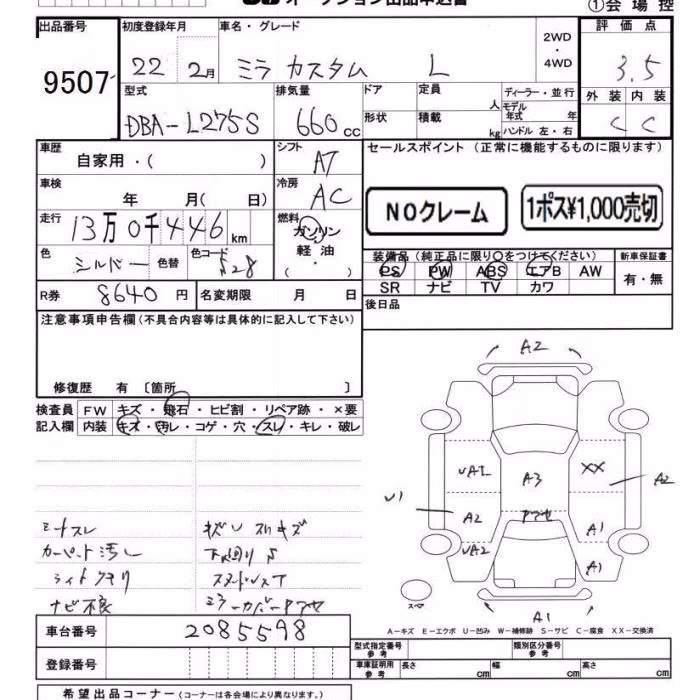 オークション出品申込書
①会場控
出品番号 初度登録年月 車名・グレード 2WD・4WD 評価点
9507 22年 2月 ミラ カスタム L 3.5
型式 排気量 ドア 定員 人 ディーラー・並行 外装 内装
DBA-L275S 660cc 形状 積載 kg モデル年式 年 C C
ハンドル 左・右
車歴 自家用・( ) シフト AT セールスポイント (正常に機能するものに限ります)
車検 年 月( 日) 冷房 AC
NOクレーム 1ポス¥1,000売切
走行 13万0千446km 燃料 ガソリン・軽油・
色 シルバー 色替 色コード S28
装備品 (純正品に限り○をつけてください) 新車保証書
PS PW ABS エアB AW 有・無
SR ナビ TV カワ
R券 8640円 名変期限 月 日 後日品
注意事項申告欄(不具合内容等は具体的に記入して下さい)
修復歴 有 〔箇所 〕
検査員記入欄 FW キズ・飛石・ヒビ割・リペア跡・×要
内装 キズ・汚レ・コゲ・穴・スレ・キレ・破レ
シートスレ キズU スリキズ
カーペット汚レ 下廻りS
ライトクモリ スタッドレスT
ナビ不良 ミラーカバーアセ
A2
UA2 A3 XX A2
U1 A2 アセ A1
UA2 A1
スペア A1
A-キズ E-エクボ U-凹み W-補修跡 S-サビ C-腐食 XX-交換済
車台番号 2085598
登録番号
型式指定番号 参考 類別区分番号 参考
車庫証明用 参考 長さ cm 幅 cm 高さ cm
希望出品コーナー (コーナーは各会場により異なります。)